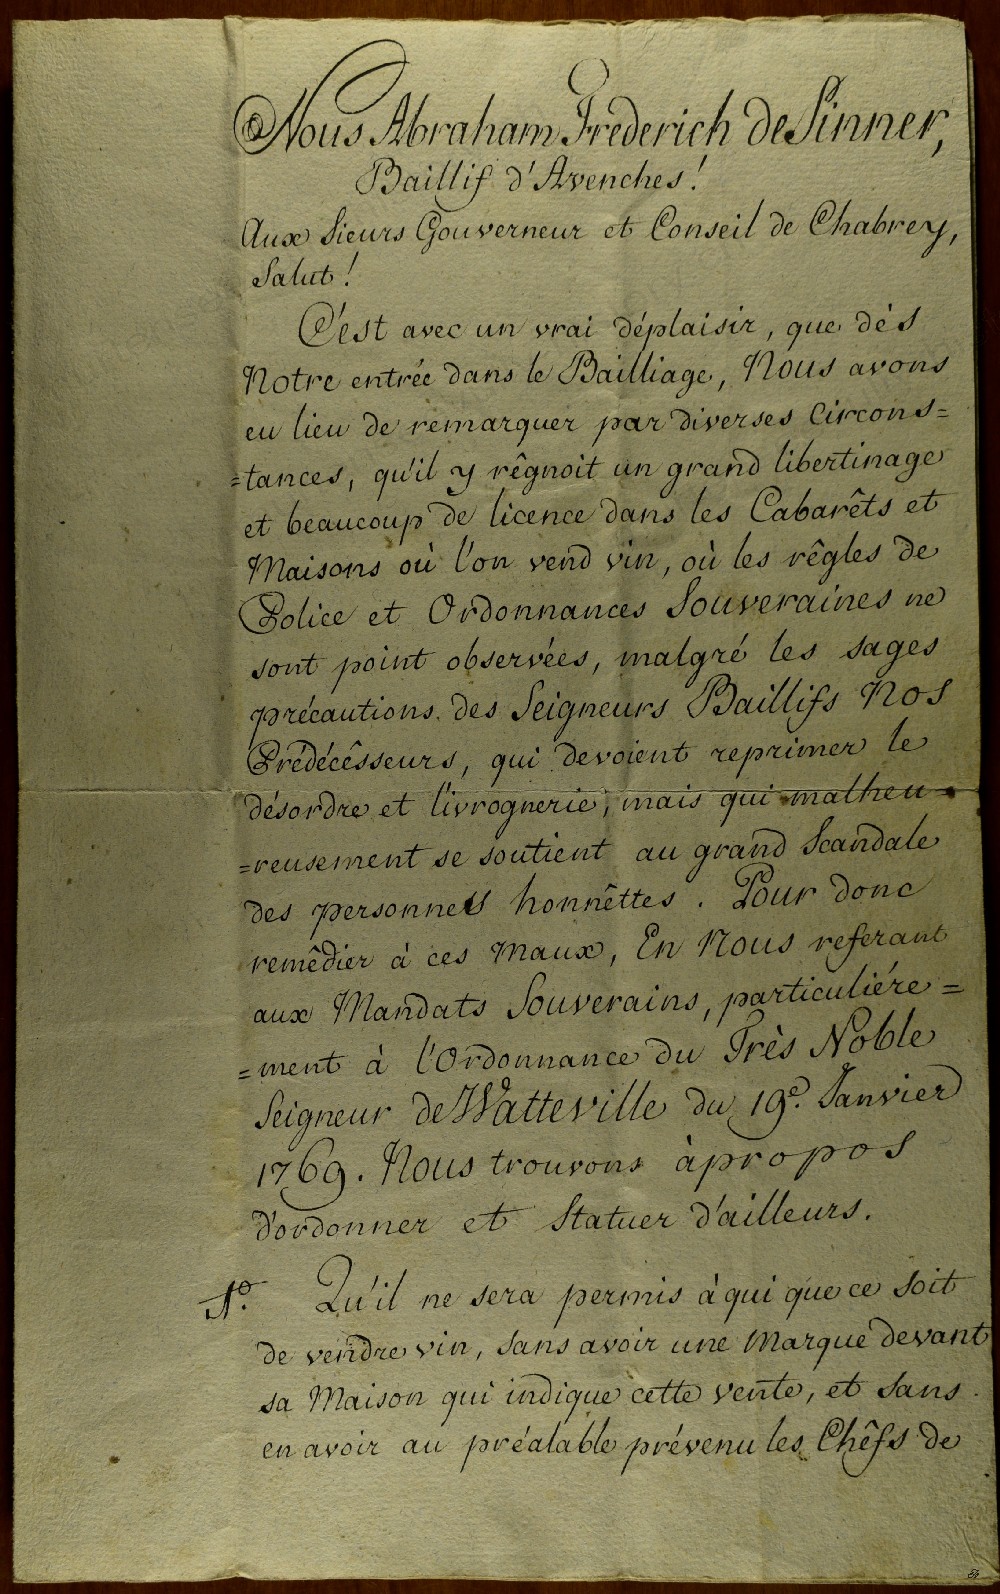 Nous Abraham Frederich de Sinner,
Baillif d'Avenches!
Aux Sieurs Gouverneur et Conseil de Chabrey,
Salut!
C'est avec un vrai déplaisir, que dés
Notre entrée dans le Bailliage, Nous avons
eu lieu de remarquer par diverses Circons=
=tances, qu'il y rêgnoit un grand libertinage
et beaucoup de licence dans les Cabarêts et
Maisons où l'on vend vin, où les rêgles de
Police et Ordonnances Souveraines ne
sont point observées, malgré les sages
précautions des Seigneurs Baillifs Nos
Prédécêsseurs, qui devoient reprimer le
désordre et l'ivrognerie, mais qui malheu=
=reusement se soutient au grand Scandale
des personnes honnêttes. Pour donc
remêdier à ces Maux, En Nous referant
aux Mandats Souverains, particuliére=
=ment à l'Ordonnance du Très Noble
Seigneur de Watteville du 19e. Janvier
1769. Nous trouvons àpropos
d'ordonner et Statuer d'ailleurs.
1o. Qu'il ne sera permis à qui que ce soit
de vendre vin, sans avoir une Marque devant
sa Maison qui indique cette vente, et sans
en avoir au préalable prévenu les Chêfs de